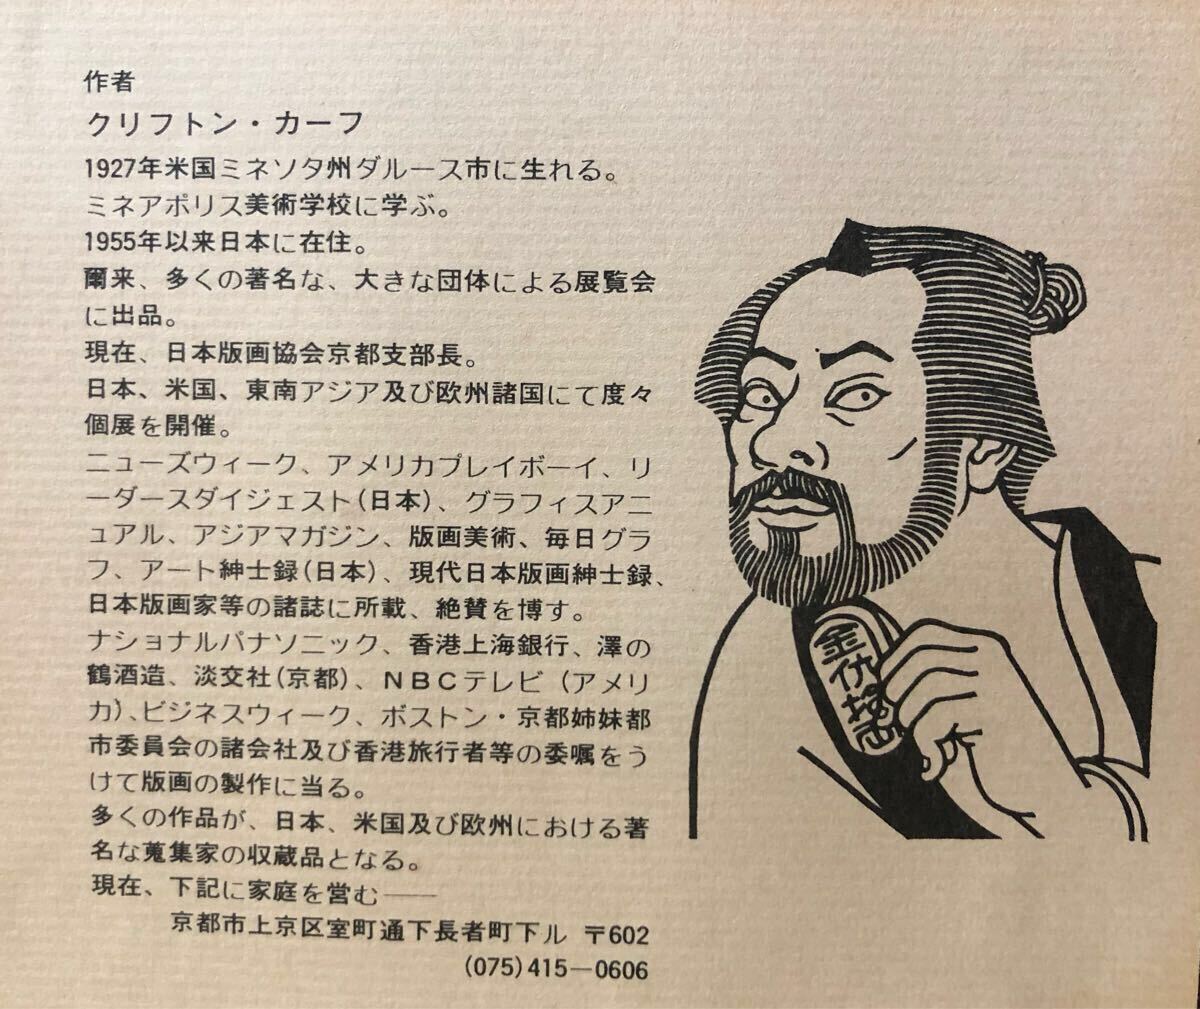 作者
クリフトン・カーフ
1927年米国ミネソタ州ダルース市に生れる。
ミネアポリス美術学校に学ぶ。
1955年以来日本に在住。
爾来、多くの著名な、大きな団体による展覧会
に出品。
現在、日本版画協会京都支部長。
日本、米国、東南アジア及び欧州諸国にて度々
個展を開催。
ニューズウィーク、アメリカプレイボーイ、リ
ーダースダイジェスト(日本)、グラフィスアニ
ュアル、アジアマガジン、版画美術、毎日グラ
フ、アート紳士録(日本)、現代日本版画紳士録、
日本版画家等の諸誌に所載、絶賛を博す。
ナショナルパナソニック、香港上海銀行、澤の
鶴酒造、淡交社(京都)、NBCテレビ(アメリ
カ)、ビジネスウィーク、ボストン・京都姉妹都
市委員会の諸会社及び香港旅行者等の委嘱をう
けて版画の製作に当る。
多くの作品が、日本、米国及び欧州における著
名な蒐集家の収蔵品となる。
現在、下記に家庭を営む——
京都市上京区室町通下長者町下ル 〒602
(075)415―0606